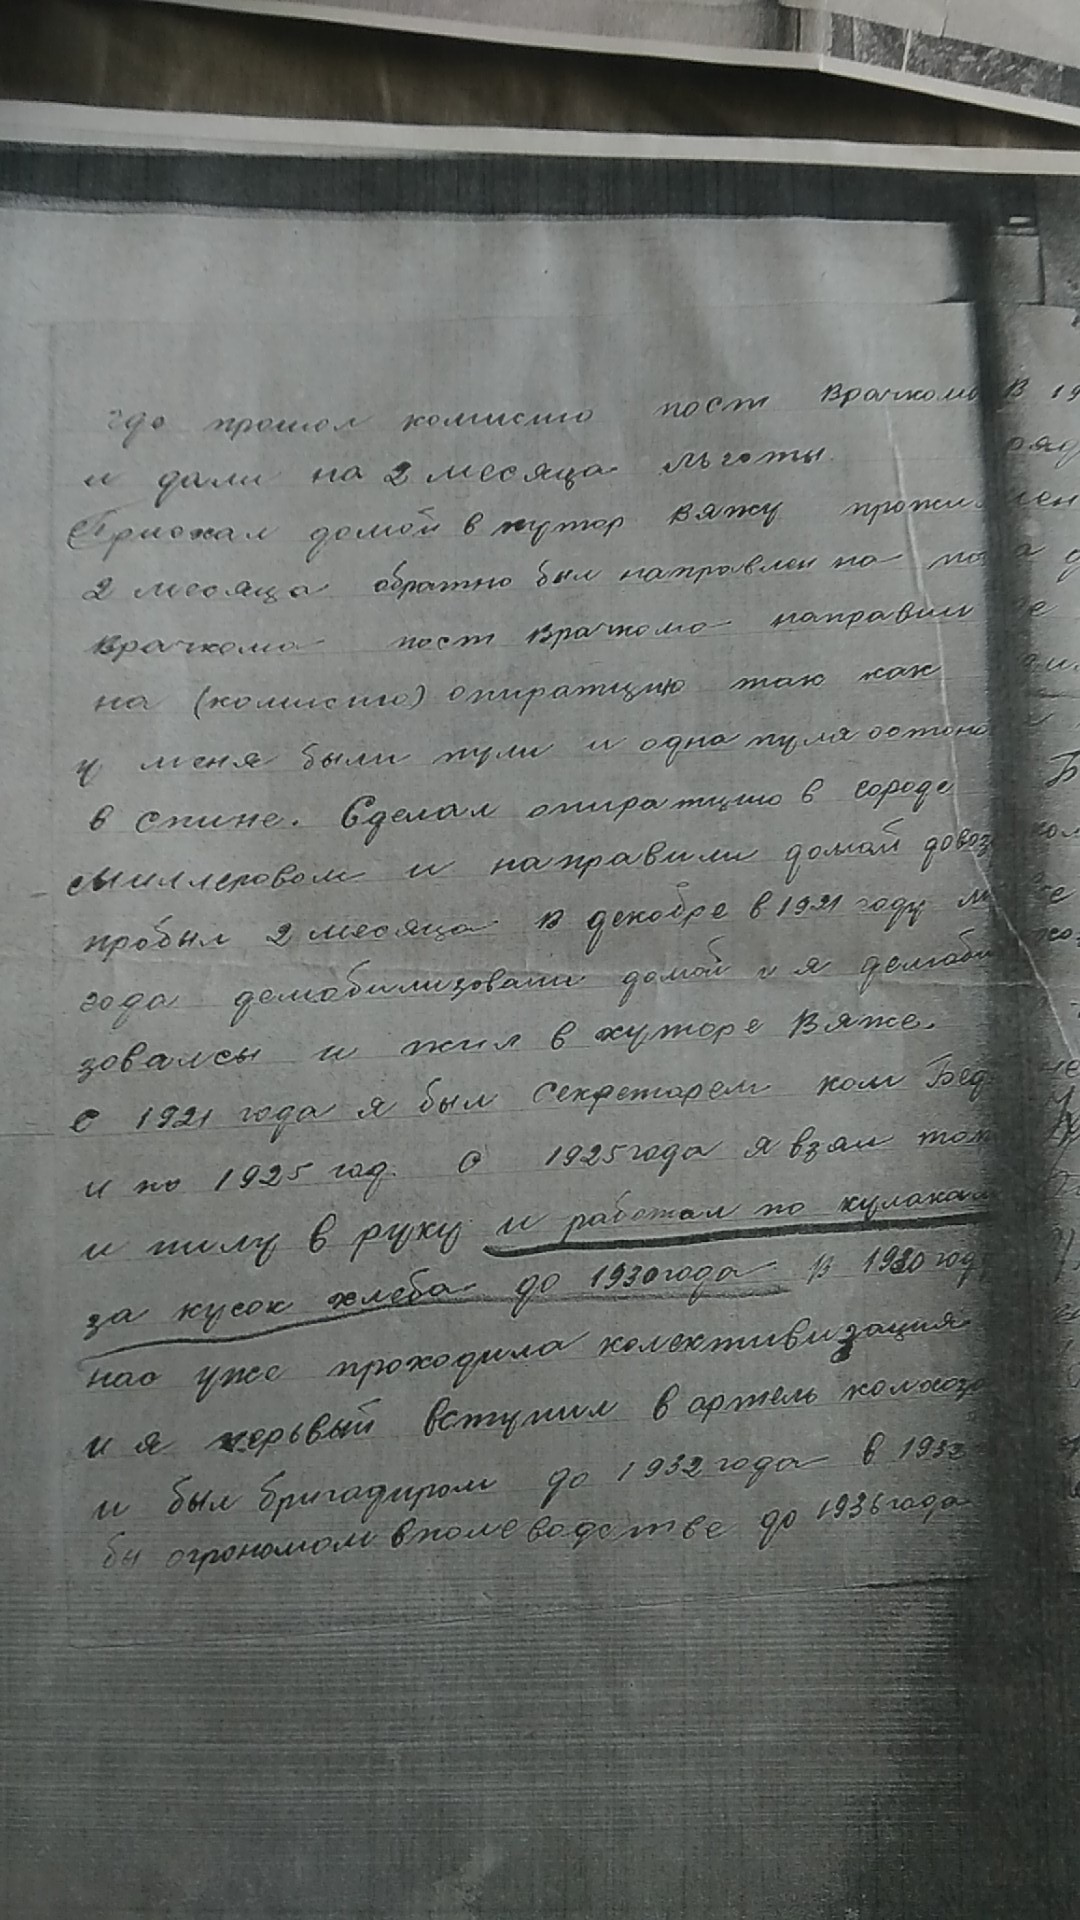 где прошол комисию пост Врачкома В 19
и дали на 2 месяца льготы.
Приехал домой в хутор Вяжу прожил
2 месяца обратно был направлен на
врачкома пост Врачкома направили
на (комисию) опиратцию так как
у меня были пули и одна пуля
в спине. Сделал опиратцию в городе
и направили домой
пробыл 2 месяца В декобре в 1921 году
года демобилизовали домой и я демоби
зовалсы и жил в хуторе Вяже.
С 1921 года я был Секретарем ком Бед
и по 1925 год. С 1925 года я взял
и пилу в руку и работал по кулакам
за кусок хлеба до 1930 года В 1930 году
нас уже проходила колективизация
и я перьвый вступил в артель колхоза
и был бригадиром до 1932 года в 1932
бы огрономом в полеводстве до 1936 года